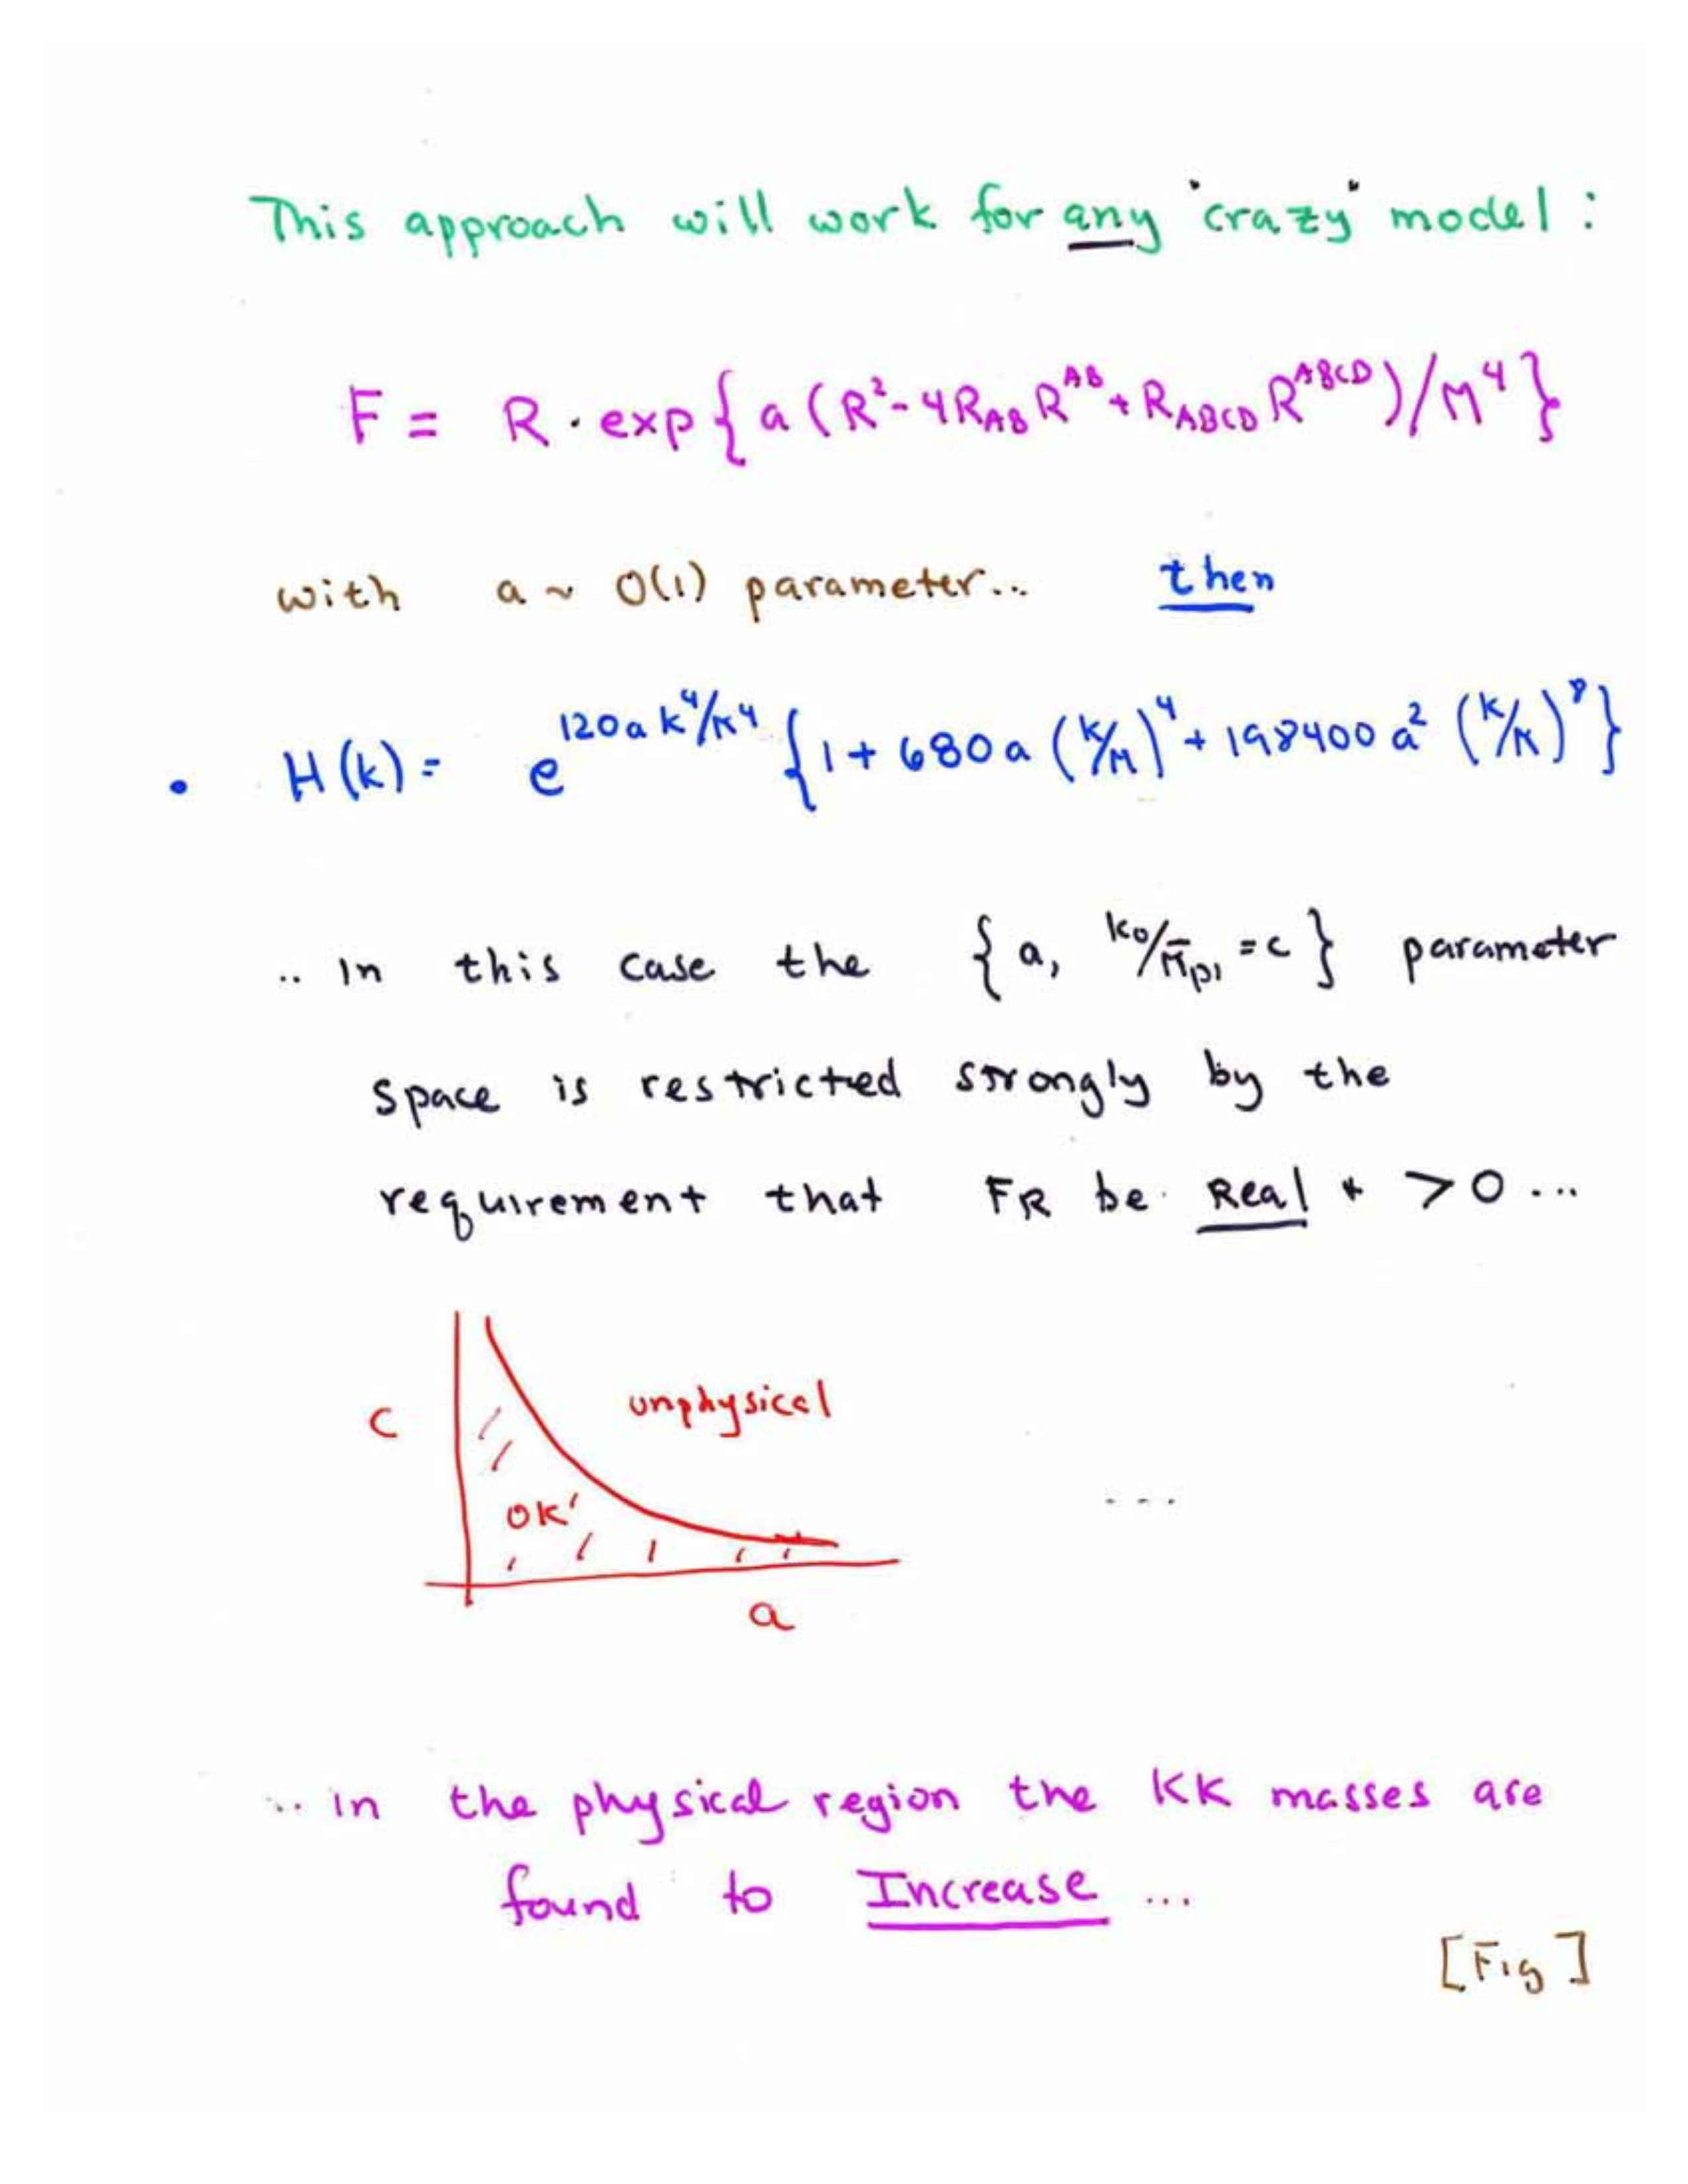 This approach will work for any "crazy" model :
F = R · exp{ a (R² - 4R_AB R^AB + R_ABCD R^ABCD)/M⁴ }
with a ~ O(1) parameter... then
• H(k) = e^{120 a k⁴/M⁴} { 1 + 680 a (k/M)⁴ + 198400 a² (k/M)⁸ }
.. in this case the { a, k₀/M̄_pl = c } parameter
space is restricted strongly by the
requirement that F_R be Real + > 0 ...
unphysical
c
OK!
...
a
... in the physical region the KK masses are
found to Increase ...
[Fig]